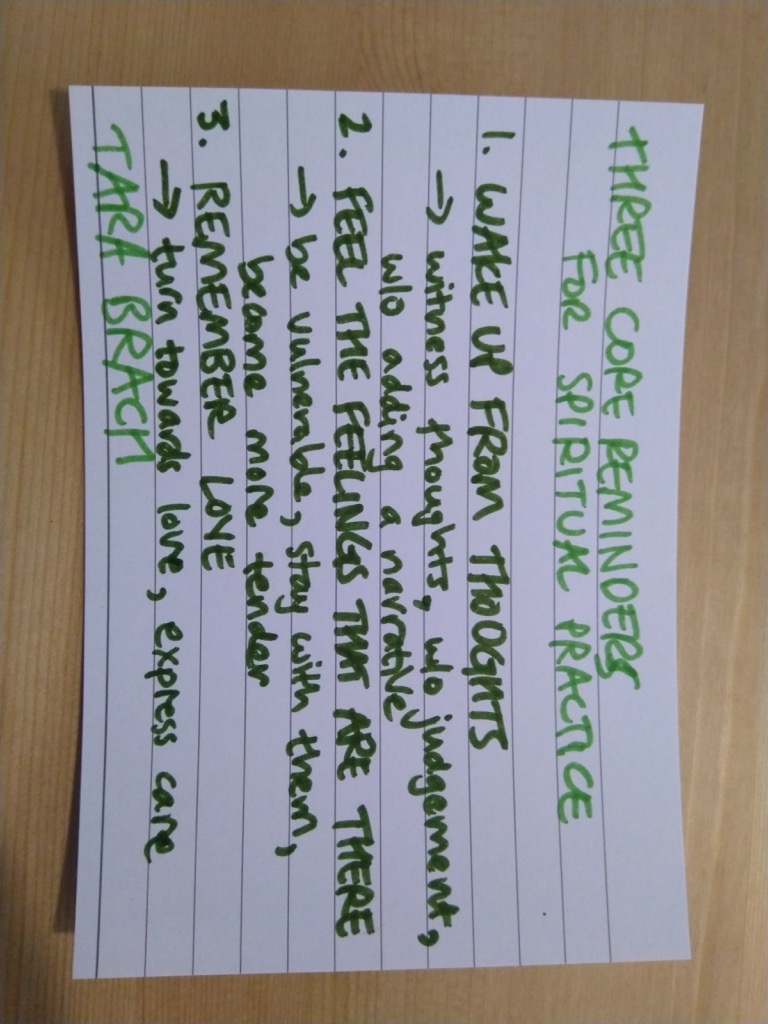 THREE CORE REMINDERS
FOR SPIRITUAL PRACTICE
1. WAKE UP FROM THOUGHTS
→ witness thoughts, w/o judgement,
w/o adding a narrative
2. FEEL THE FEELINGS THAT ARE THERE
→ be vulnerable, stay with them,
become more tender
3. REMEMBER LOVE
→ turn towards love, express care
TARA BRACH